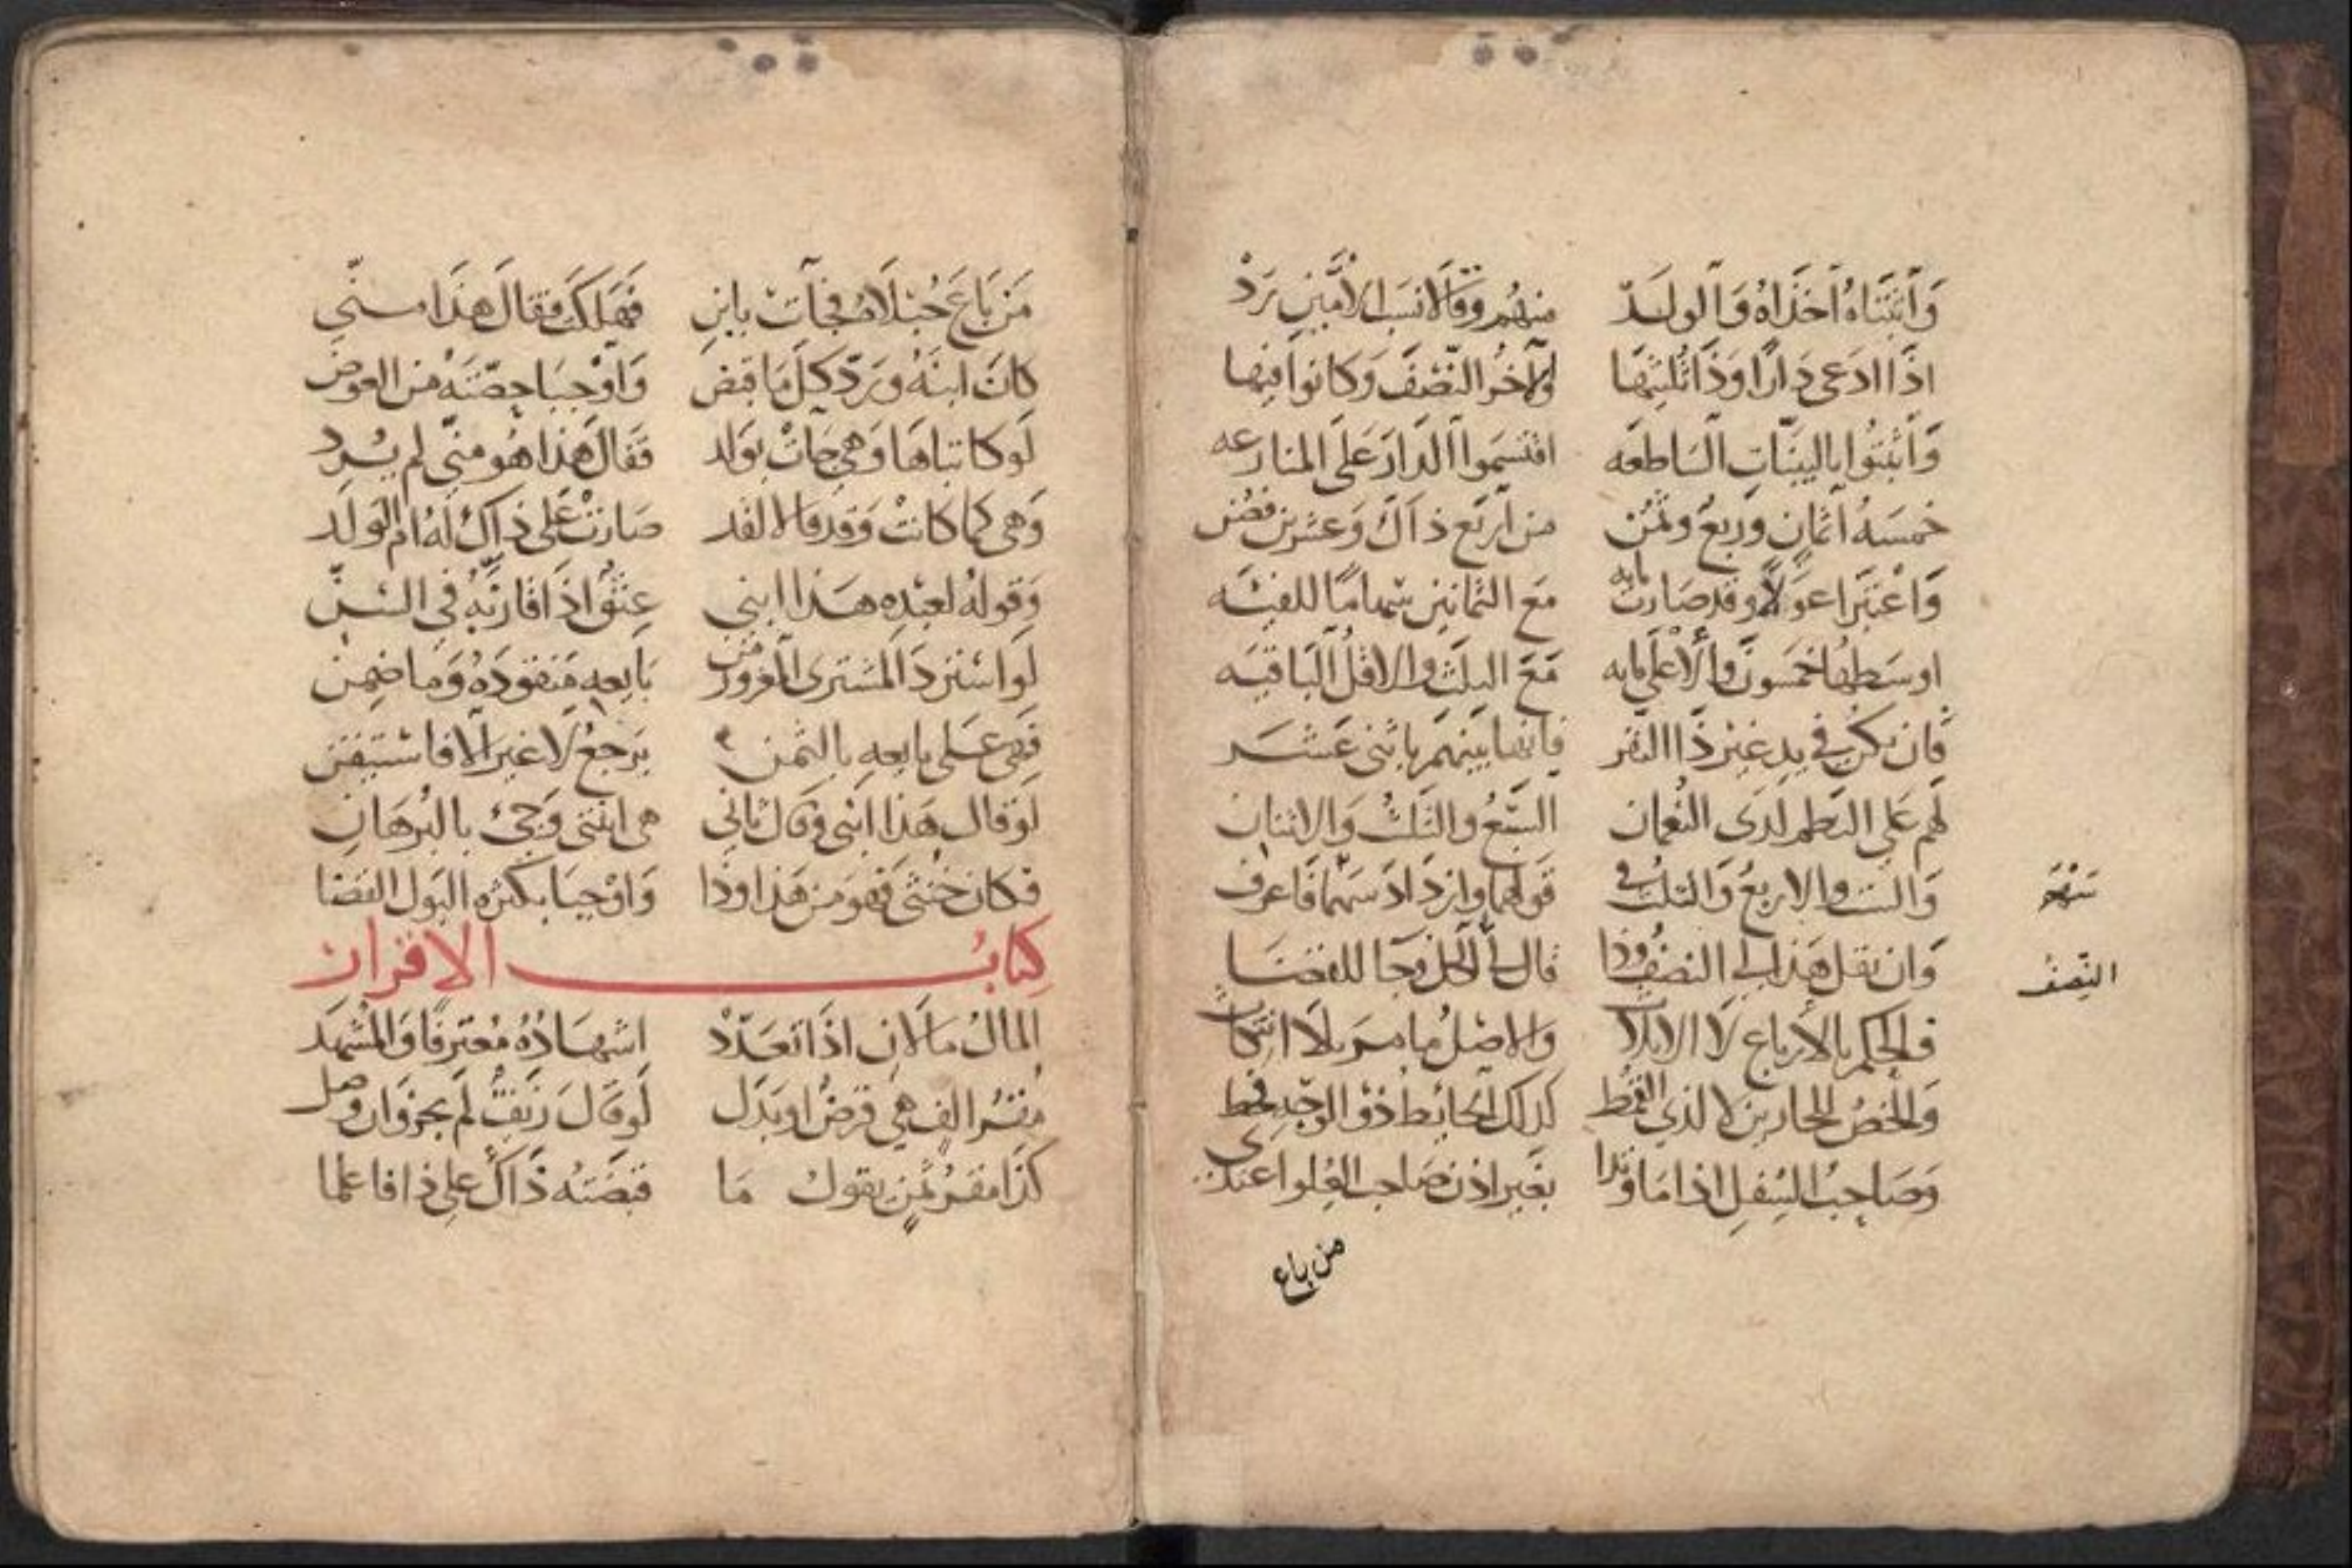 وَاثبتاهُ اخذاهُ وَالولَد منهُم وقالا نسب الامَين يَرَدْ
اذَا ادعى دَارًا وَذَا ثُلثيهَا والآخرُ النّصْفَ وَكانوا فيها
وَاثبتوا بالبينّاتِ السَاطعَه اقتسَموا الدارَ عَلى المنازعه
خمسَهُ اثمانٍ وربعٌ وثمُن من اربَع ذاكَ وَعشرين
وَاعتبَرا عولاً وقد صَارت مايه مَعَ الثمانين سهامًا للفيَه
اوسَطها خمسونَ والأعلى مايه مَعَ الثلث والاقلُ البَاقيَه
فان تكن في يدِ غير ذَا النفر فانها بينهم باثنى عَشَر
لهم عَلى لدى النعمان السَّبعُ والثلثُ وَالاثنان
وَالستُ والاربعُ وَالثلث في قولهما وازدَادَ سَهمًا فاعرف
سَهْمَ
وَان يقل هَذا لى النصفُ وذا قال لىَ الكل وجَا للقضَا
النّصفُ
فالحكم بالأرباع لاَ الاثلاث وَالاصْلُ مَا مر بلا
وَالخصُ للجارين لا لذي القمط كذلك الحائطُ ذو الوجهِ فقط
وَصَاحِبُ السِفلِ اذا مَا وتدا بغَير اذن صَاحب العِلو اعتدى
من باع
مَن بَاعَ حُبلاَهُ فجَآتْ بابنِ فهَلكَت فقالَ هَذَا منّي
كانَ ابنَهُ وَرَدّ كلَ مَا قبض وَاوْجبَا حِصّتَهُ من العوض
لَو كاتباهَا وَهي جَاتْ بوَلد فقالَ هَذا هُو منّي لم يُرد
وَهي كما كانتْ وَقدْ قالا لقد صَارتْ عَلى ذاكَ لهُ ام الوَلَد
وَقولهُ لعبْدِهِ هَذا ابنى عِتقٌ اذَا قارنَهُ في السنِّ
لَو استردَ المشترى المغرورُ من بَايعِهِ مَنقودَهُ وَما ضمِن
فهى عَلى بايعِهِ بالثمن يَرجعُ لاَ غير الا فاستيقنن
لَو قالَ هَذا ابنى وَقالَ ثانى هي ابنتى وَجئ بالبُرهَانِ
فكانَ خنثى فهوَ مِن هَذا وذا وَاوْجبَا بكثرهِ البَول القضَا
كتابُ الاقرار
المالُ مَالانِ اذَا تعَدّدْ اشهَادُهُ مُعترفًا وَالمشهَد
مقرُ الفٍ هي قرضٌ او بَدَل لَو قالَ زَيفٌ لَم يجز وَان وصل
كذَا مقرُ ثمنٍ يقول مَا قبضتهُ ذاكَ على ذا فاعلما